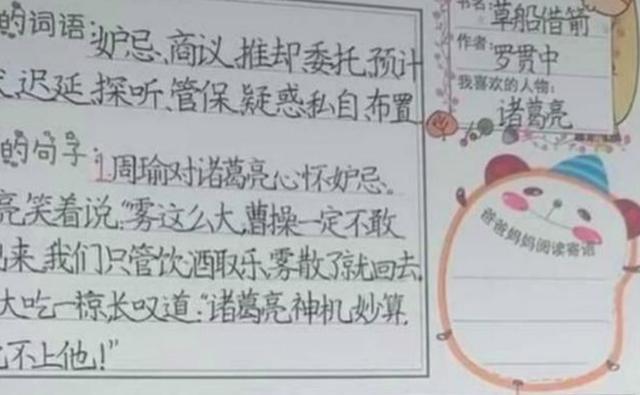 的词语:妒忌、商议、推却、委托、预计
迟延、探听、管保、疑惑、私自、布置
的句子:1.周瑜对诸葛亮心怀妒忌。
亮笑着说:“雾这么大,曹操一定不敢
来,我们只管饮酒取乐,雾散了就回去。
大吃一椋,长叹道:“诸葛亮神机妙算,
不上他!”
书名:草船借箭
作者:罗贯中
我喜欢的人物:
诸葛亮
爸爸妈妈阅读寄语